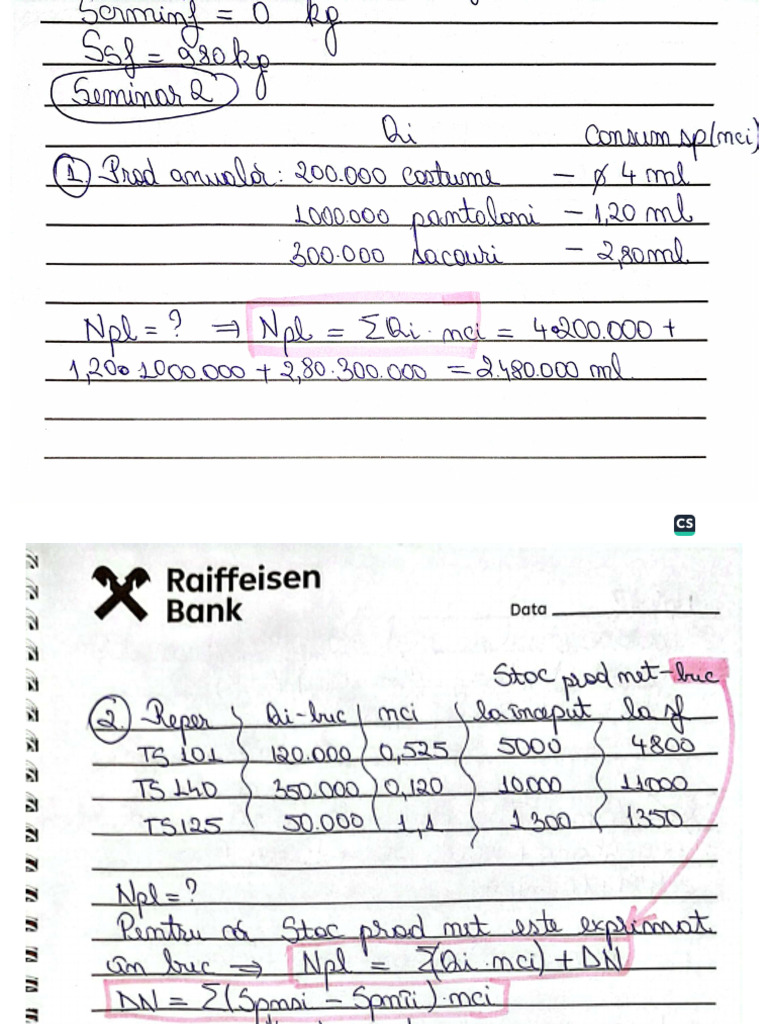 Serminf = 0 kg
Ssf = 980 kg
Seminar 2
Qi Consum sp (mci)
1. Prod anuală: 200.000 costume - 4 ml
1000.000 pantaloni - 1,20 ml
300.000 sacouri - 2,80 ml
Npl = ? ⇒ Npl = ΣQi · mci = 4·200.000 +
1,20·1000.000 + 2,80·300.000 = 2.480.000 ml
CS
Raiffeisen
Bank
Data
Stoc prod net - buc
2 Reper Qi-buc mci la început la sf
TS 101 120.000 0,525 5000 4800
TS 140 350.000 0,120 10.000 11000
TS 125 50.000 1,1 1300 1350
Npl = ?
Pentru că Stoc prod net este exprimat
în buc ⇒ Npl = Σ(Qi · mci) + ΔN
ΔN = Σ(Spnsi - Spnîi) · mci